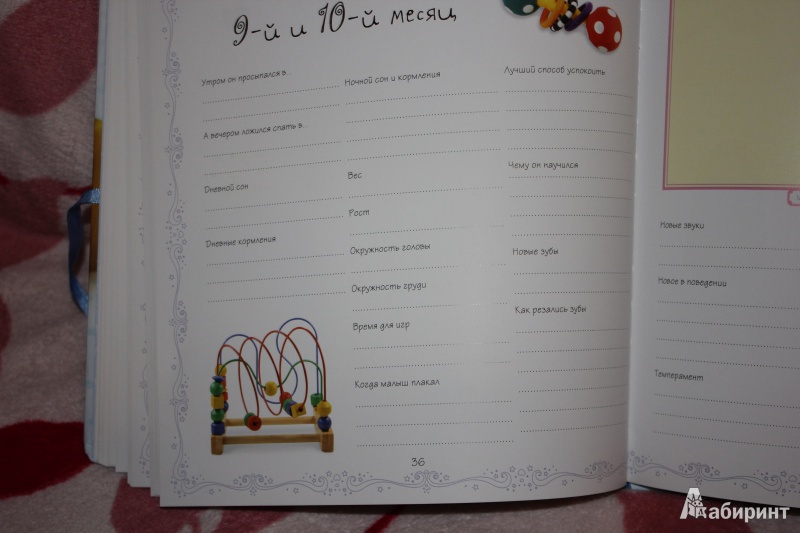 9-й и 10-й месяц
Утром он просыпался в...
А вечером ложился спать в...
Дневной сон
Дневные кормления
Ночной сон и кормления
Вес
Рост
Окружность головы
Окружность груди
Время для игр
Когда малыш плакал
Лучший способ успокоить
Чему он научился
Новые зубы
Как резались зубы
36
Новые звуки
Новое в поведении
Темперамент
Лабиринт